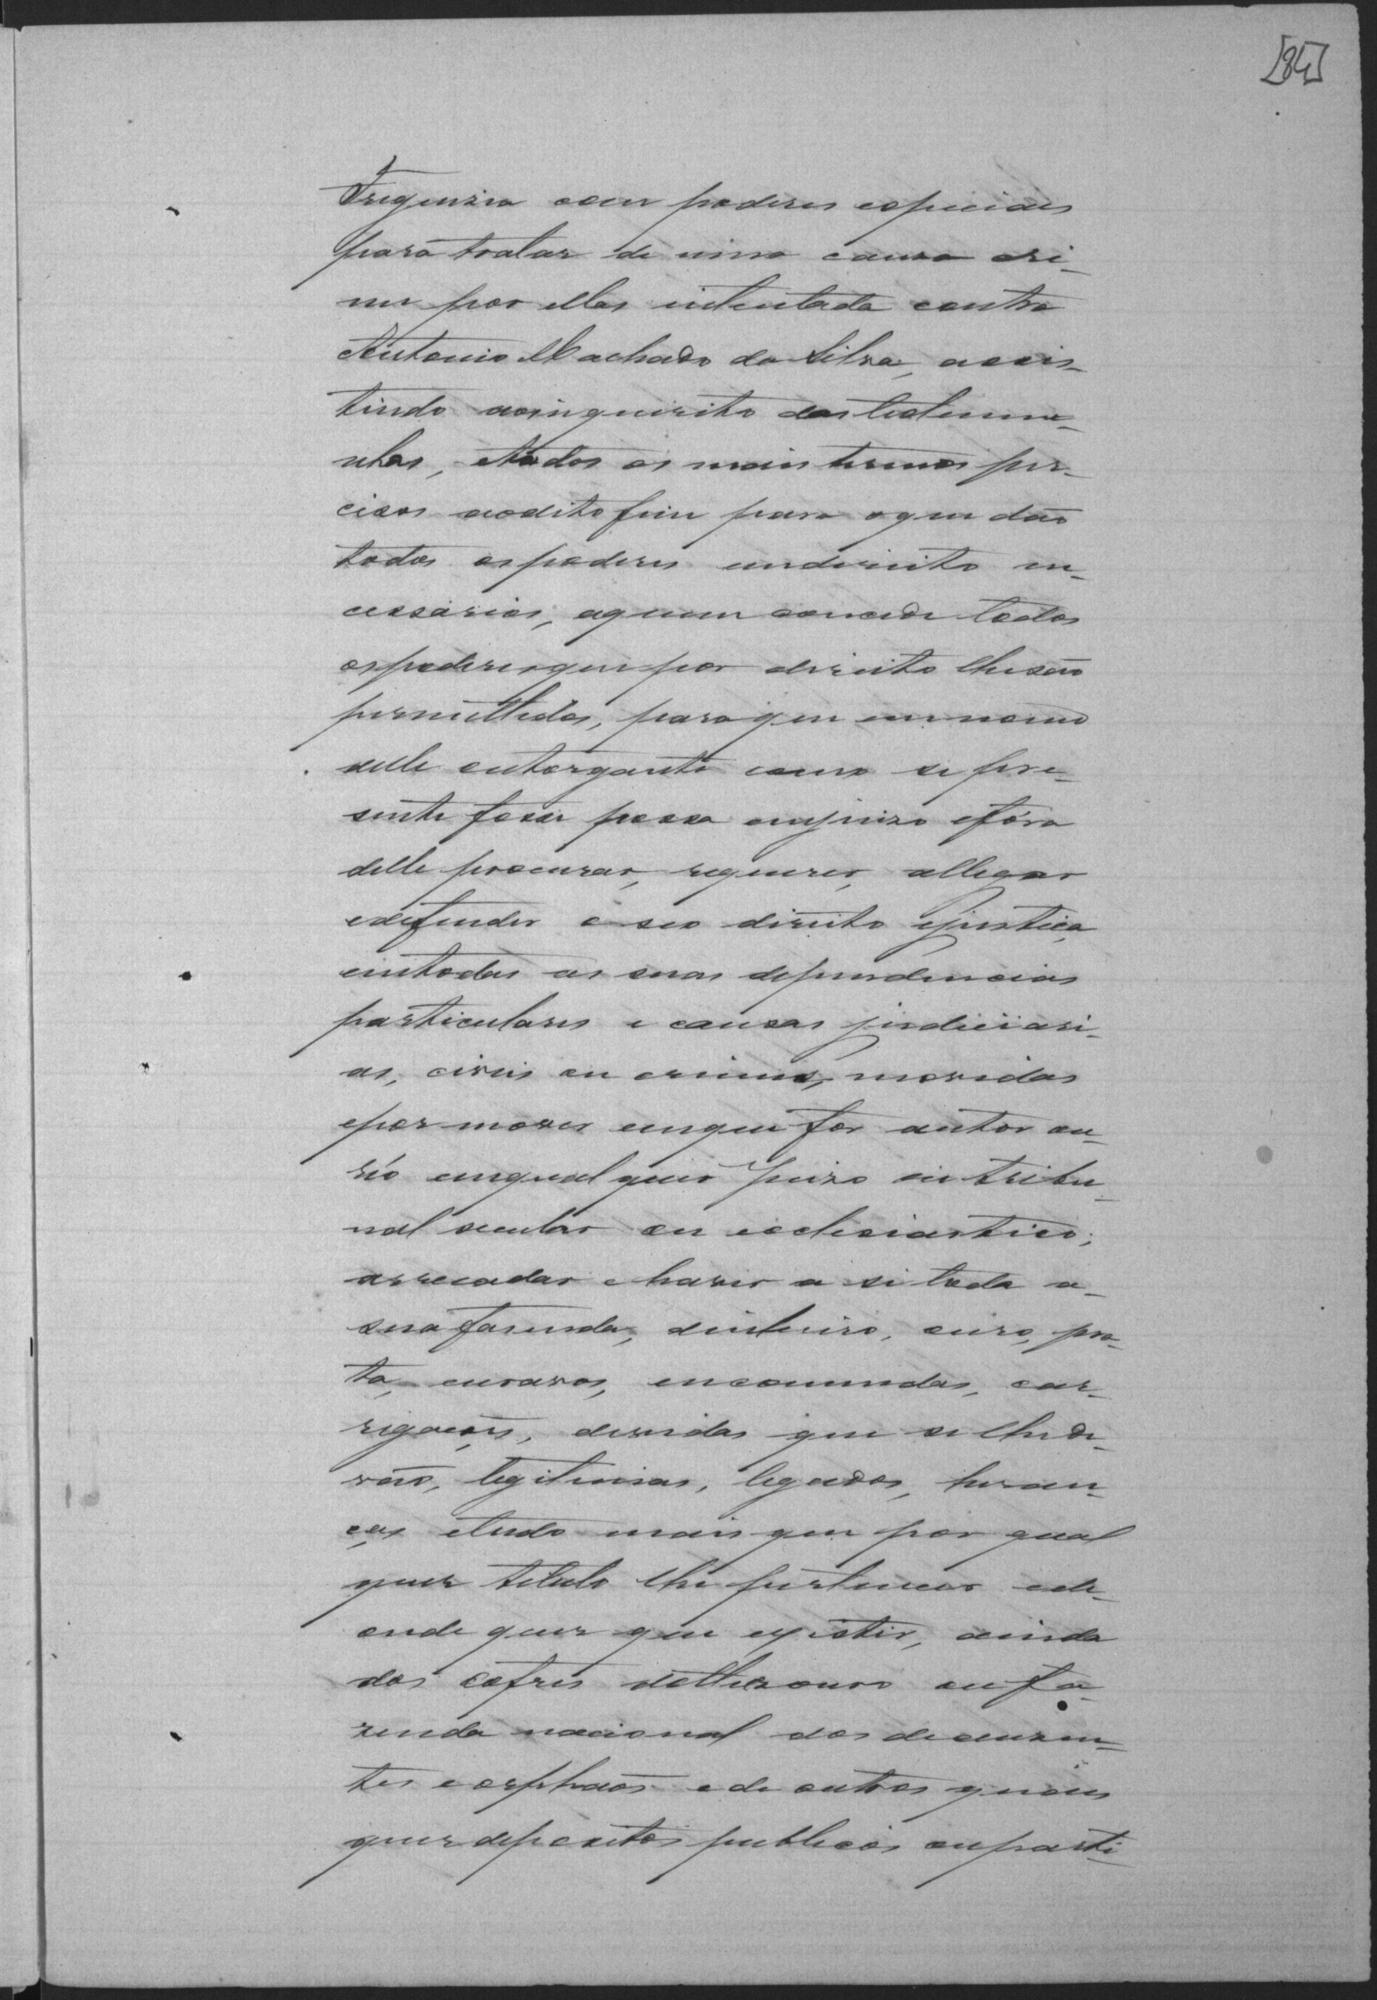 [84]
Freguezia com poderes especiaes
para tratar de uma causa cri-
me por elles intentada contra
Antonio Machado da Silva, assis-
tindo aoinquirito das testemu-
nhas, etodos os mais termos pre-
cisos aodito fim para oque dão
todos ospoderes emdireito ne-
cessarios, aquem concede todos
ospoderesque por direito lhesão
permettidos, paraque em nome
delle outorgante como se pre-
sente fosse possa emjuizo efóra
delle procurar, requerer, allegar
edefender o seo direito ejustiça
emtodas as suas dependencias
particulares e causas judiciari-
as, civeis ou crimes, movidas
epor mover emque for autor ou
réo emqual quer Juizo ou tribu-
nal secular ou ecclesiastico;
arrecadar e haver a si toda a
sua fazenda, dinheiro, ouro, pra-
ta, escravos, encomendas, car-
regações, dividas que se lhe de-
vão, legitimas, legados, heran-
ças etudo mais que por qual
quer titulo lhe pertencer ede
onde quer que existir, ainda
dos cofres dothesouro oufa-
zenda nacional dos deauzen-
tes eorphãos ede outros quaes
quer depozitos publicos ouparti-